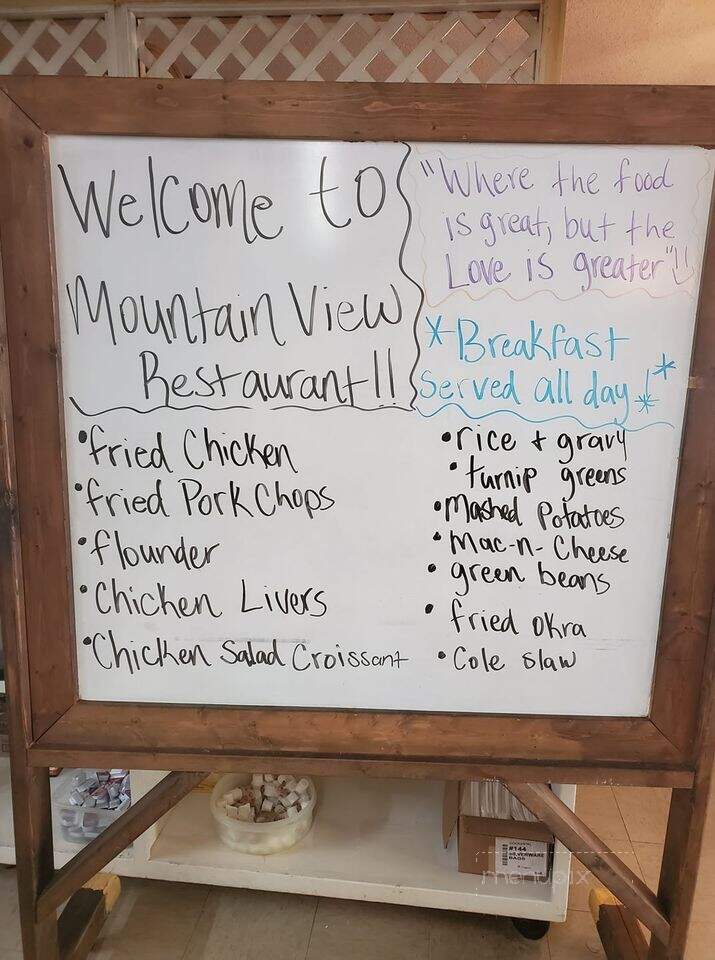 Welcome to
Mountain View
Restaurant!!
"Where the food
is great, but the
Love is greater"!!
*Breakfast
Served all day!*
• fried Chicken
• fried Pork Chops
• flounder
• Chicken Livers
• Chicken Salad Croissant
• rice + gravy
• turnip greens
• Mashed Potatoes
• Mac-n-Cheese
• green beans
• fried okra
• Cole slaw
#144
SILVERWARE
BAGS
menupix